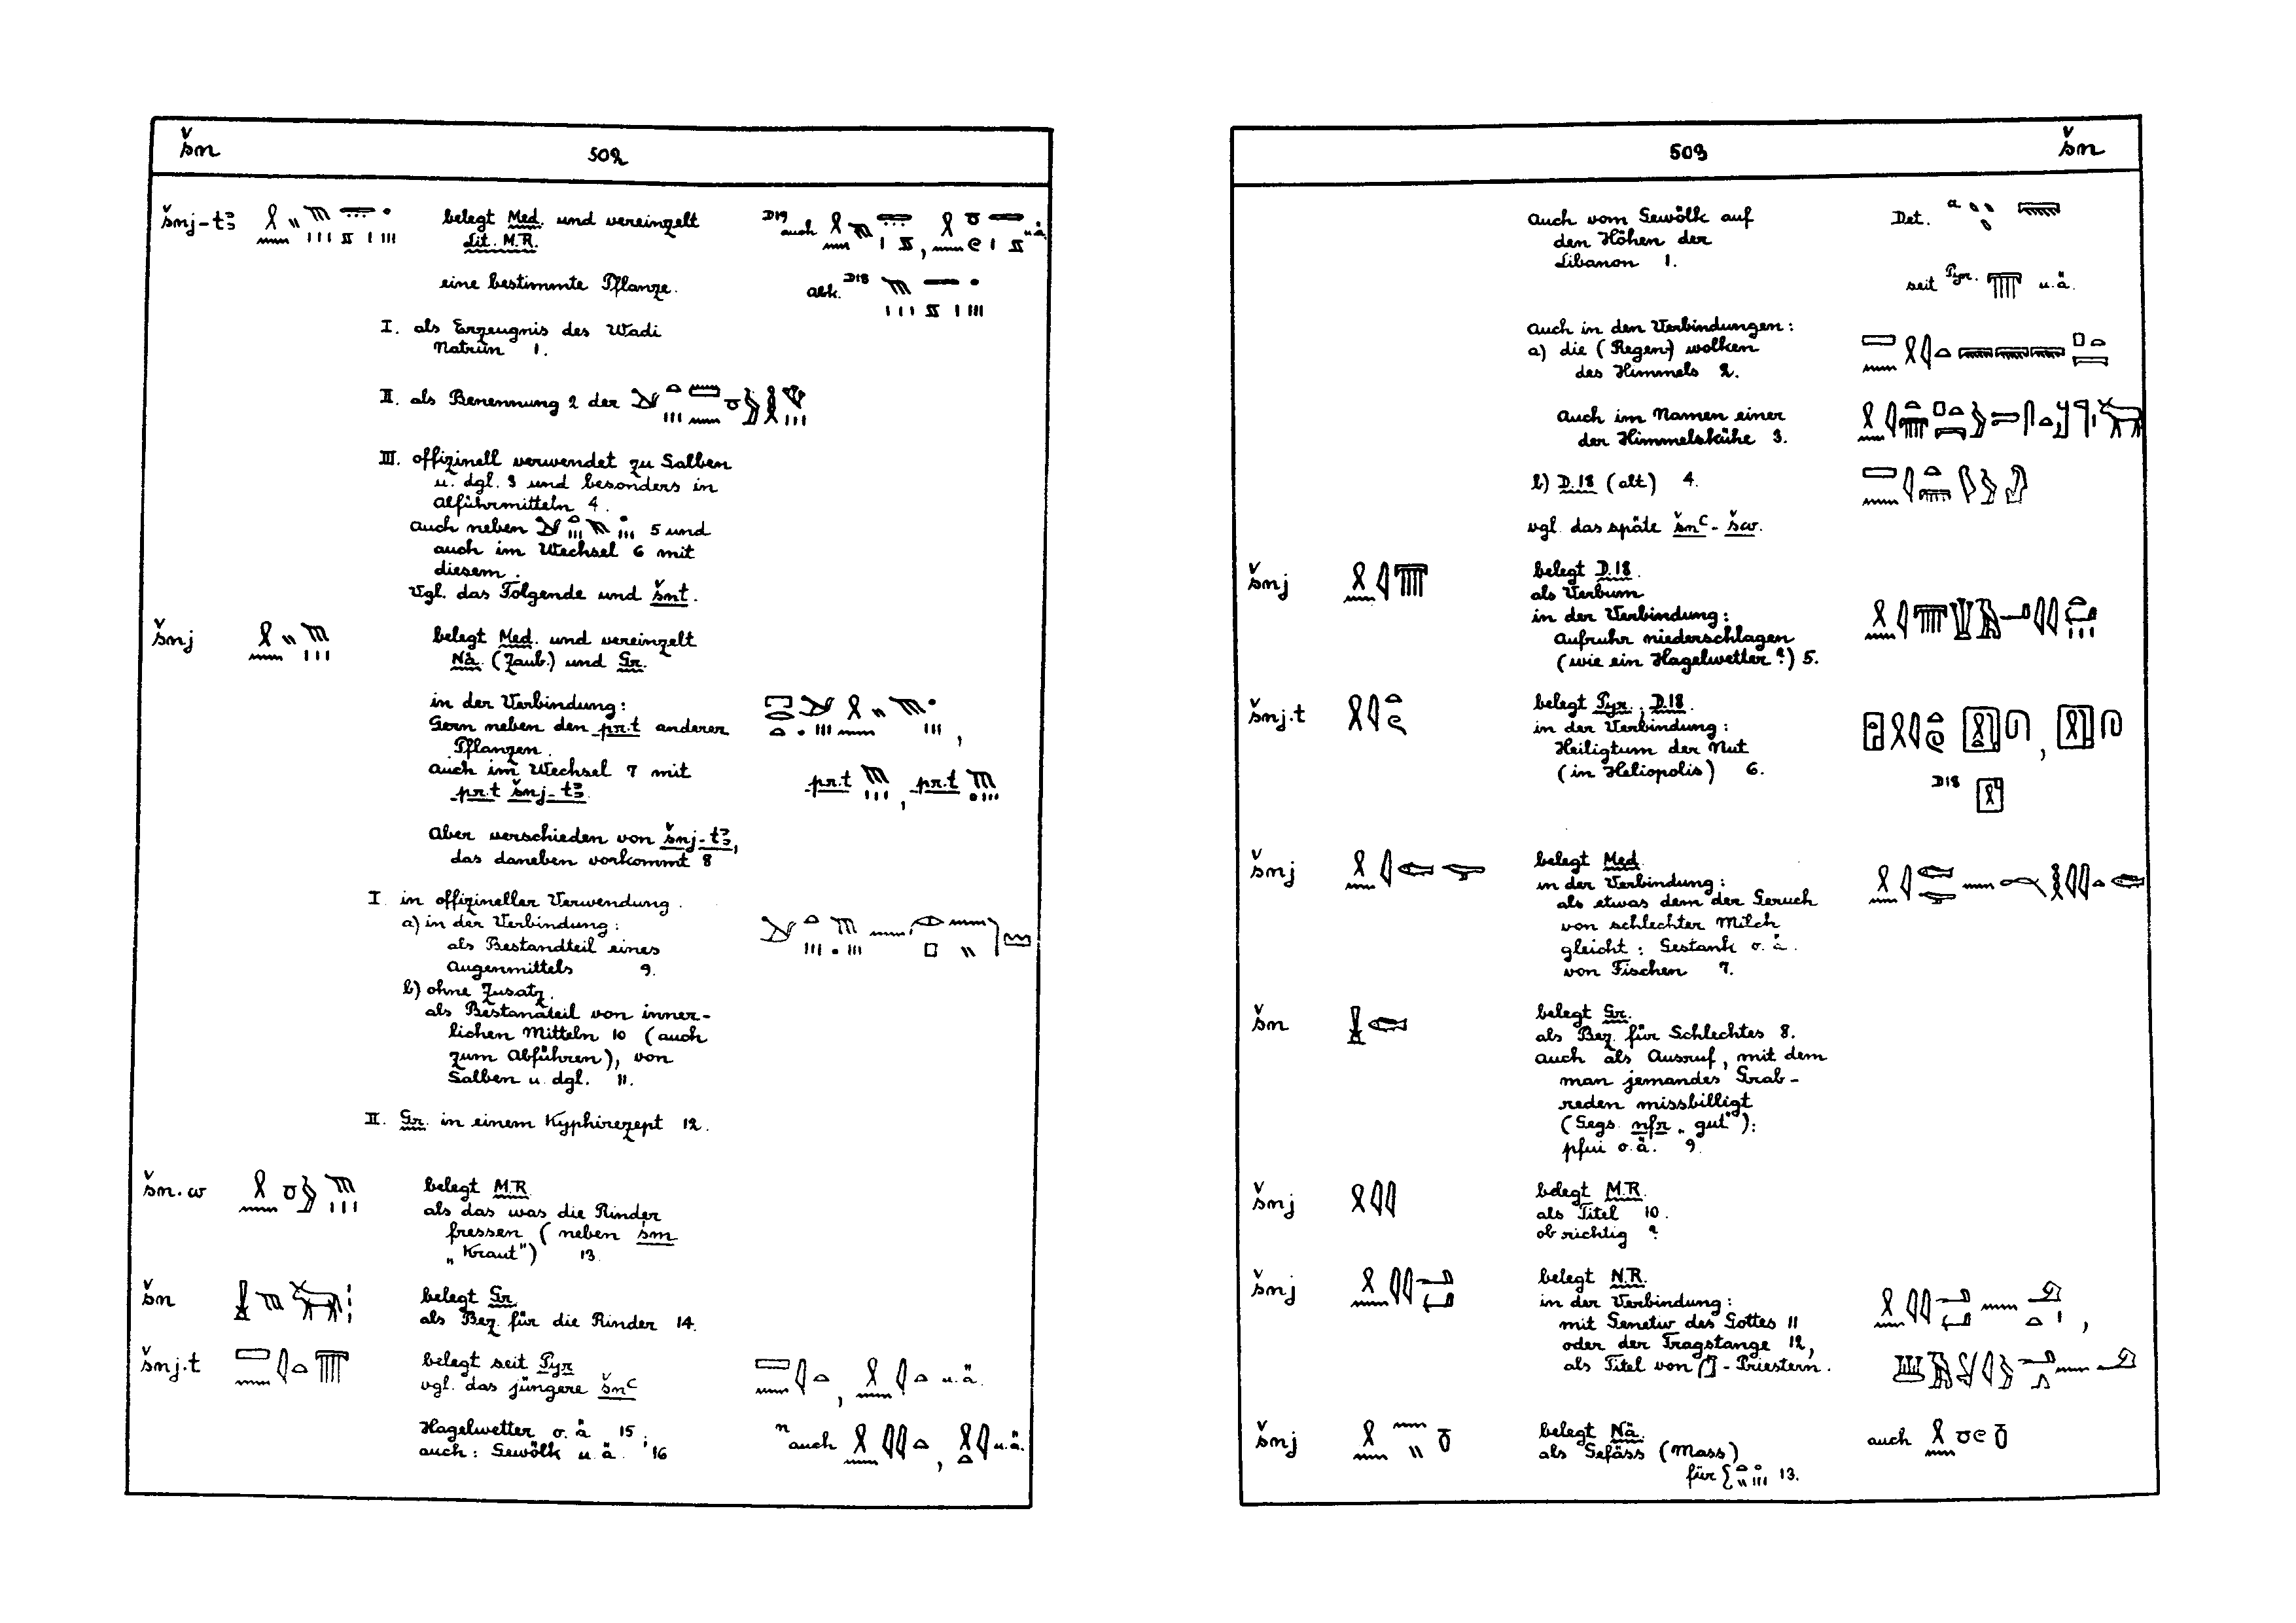 šn 502
šnj-tꜣ belegt Med. und vereinzelt D19 auch u.ä.
Lit. M.R.
eine bestimmte Pflanze. abk. D18
I. als Erzeugnis des Wadi
Natrun 1.
II. als Benennung 2 der
III. offizinell verwendet zu Salben
u. dgl. 3 und besonders in
Abführmitteln 4.
auch neben 5 und
auch im Wechsel 6 mit
diesem.
Vgl. das Folgende und šnt.
šnj belegt Med. und vereinzelt
Nä. (Zaub.) und Gr.
in der Verbindung:
Gern neben den pr.t anderer
Pflanzen.
auch im Wechsel 7 mit pr.t , pr.t
pr.t šnj-tꜣ
Aber verschieden von šnj-tꜣ,
das daneben vorkommt 8
I in offizineller Verwendung.
a) in der Verbindung:
als Bestandteil eines
Augenmittels 9.
b) ohne Zusatz.
als Bestandteil von inner-
lichen Mitteln 10 (auch
zum Abführen), von
Salben u. dgl. 11.
II. Gr. in einem Kyphirezept 12.
šn.w belegt M.R.
als das was die Rinder
fressen (neben śm
„Kraut") 13.
šn belegt Gr.
als Bez. für die Rinder 14.
šnj.t belegt seit Pyr
vgl. das jüngere šnꜥ , u.ä.
Hagelwetter o.ä 15; n auch , u.ä.
auch: Gewölk u.ä. 16
503 šn
Auch vom Gewölk auf Det. a
den Höhen der
Libanon 1.
seit Pyr. u.ä.
Auch in den Verbindungen:
a) die (Regen) wolken
des Himmels 2.
Auch im Namen einer
der Himmelskühe 3.
b) D.18 (alt) 4.
vgl. das späte šnꜥ-šw.
šnj belegt D.18.
als Verbum
in der Verbindung:
Aufruhr niederschlagen
(wie ein Hagelwetter?) 5.
šnj.t belegt Pyr., D.18.
in der Verbindung:
Heiligtum der Nut
(in Heliopolis) 6.
D18
šnj belegt Med
in der Verbindung:
als etwas dem der Geruch
von schlechter Milch
gleicht: Gestank o.ä.
von Fischen 7.
šn belegt Gr.
als Bez. für Schlechtes 8.
auch als Ausruf, mit dem
man jemandes Grab-
reden missbilligt
(Gegs. nfr „gut"):
pfui o.ä. 9
šnj belegt M.R.
als Titel 10.
ob richtig?
šnj belegt N.R.
in der Verbindung:
mit Genetiv des Gottes 11
oder der Tragstange 12,
als Titel von - Priestern.
šnj belegt Nä. auch
als Gefäss (Mass)
für 13.